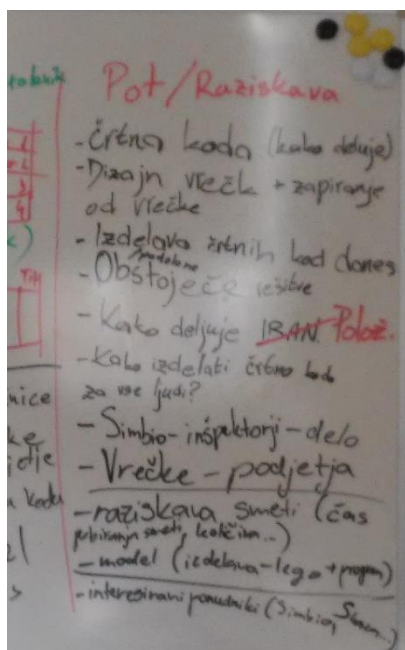 Pot/Raziskava
- Črtna koda (kako deluje)
- Dizajn vrečk + zapiranje
od vrečke
- Izdelava črtnih kod danes
podobne
- Obstoječe rešitve
- Kako deljuje IBAN Polož.
- Kako izdelati črtno kodo
za vse ljudi?
- Simbio-inšpektorji-delo
- Vrečke - podjetja
- raziskava smeti (čas
pobiranja smeti, količina...)
- model (izdelava-lego + program)
- interesirani ponudniki (Simbio,
nice
ke
kodu